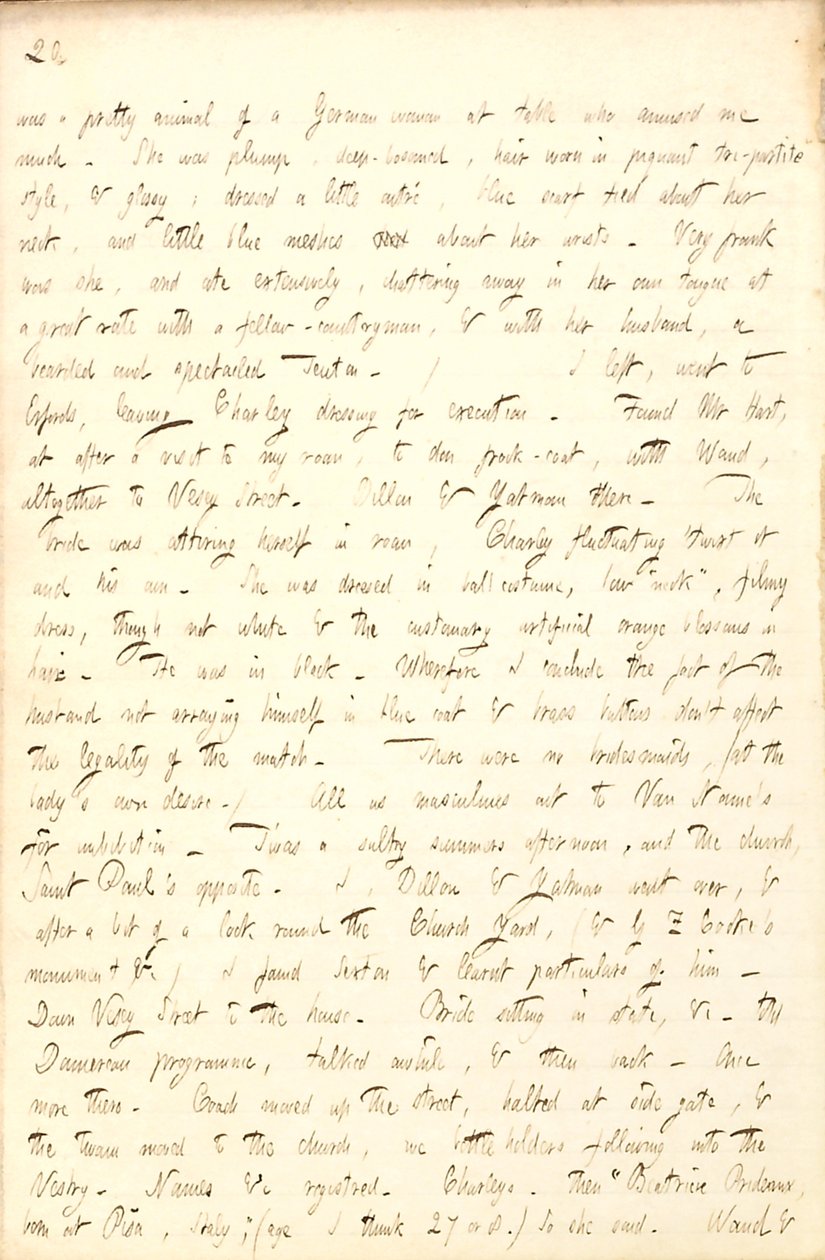 20
was a pretty animal of a German woman at table who amused me
much - She was plump, deep-bosomed, hair worn in piquant tri-partite
style, & glossy; dressed a little outré, blue scarf tied about her
neck, and little blue meshes about her wrists - Very frank
was she, and ate extensively, chattering away in her own tongue at
a great rate with a fellow-countryman, & with her husband, a
bearded and spectacled Teuton - / I left, went to
Erfords, leaving Charley dressing for execution - Found Mr Hart,
at after a visit to my room, to don frock-coat, with Waud,
altogether to Vesey Street - Dillon & Yatman there - The
bride was attiring herself in room, Charley fluctuating 'twixt it
and his own - She was dressed in ball costume, low "neck", filmy
dress, though not white & the customary artificial orange blossoms in
hair - He was in black - Wherefore I conclude the fact of the
husband not arraying himself in blue coat & brass buttons don't affect
the legality of the match - There were no bridesmaids, (at the
lady's own desire -) All us masculines out to Van Name's
for imbibition - T'was a sultry summers afternoon, and the church,
Saint Paul's opposite - I, Dillon & Yatman went over, &
after a bit of a look round the Church Yard, (& G F Cooke's
monument &c) I found Sexton & learnt particulars of him -
Down Vesey Street to the house - Bride sitting in state, &c - the
programme, talked awhile, & then back - Once
more there - Coach moved up the street, halted at side gate, &
the twain moved to the church, we bottle holders following into the
Vestry - Names &c registred - Charleys - then "Beatrice Prideaux,
born at Pisa, Italy," (age I think 27 or 8.) So she said - Waud &